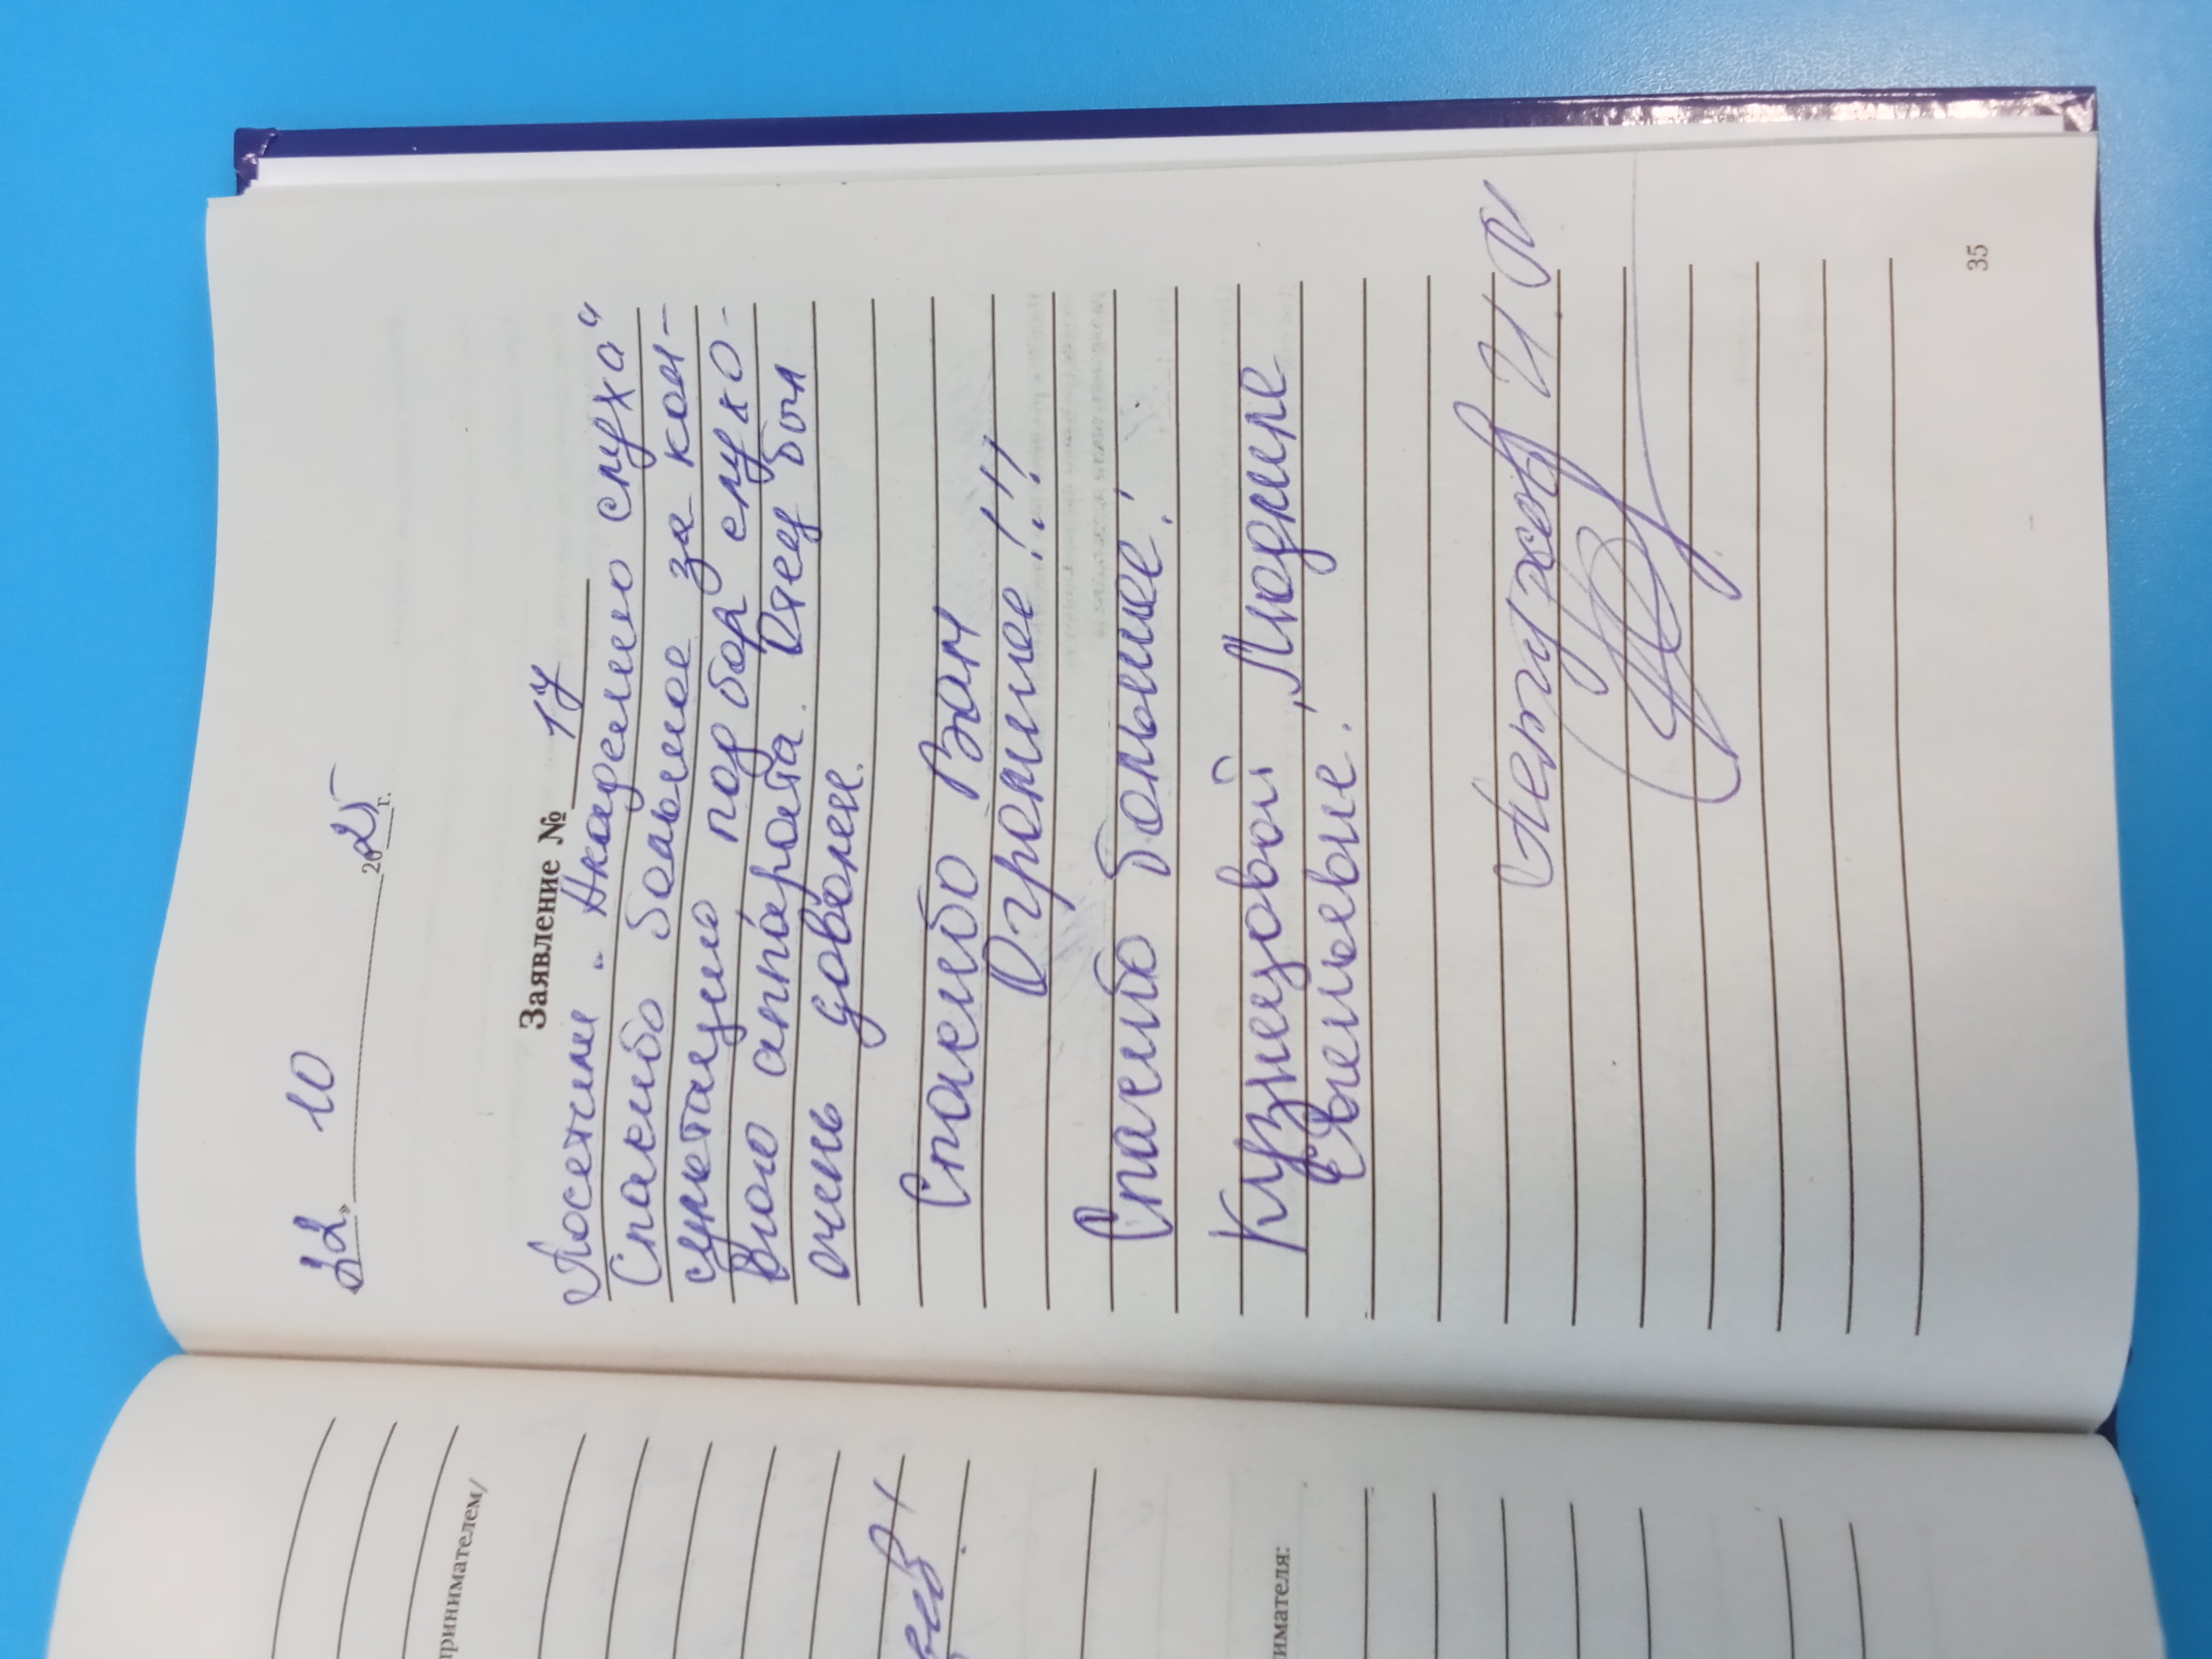 22 10 2025 г.
Заявление № 17
Посетили "Академию слуха"
Спасибо большое за кон-
сультацию подбор слухо-
вого аппарата. Отец был
очень доволен.
Спасибо Вам
Огромное!!!
Спасибо большое!
Кузнецовой Людмиле
Евгеньевне!
И П
35
принимателем/
имателя: